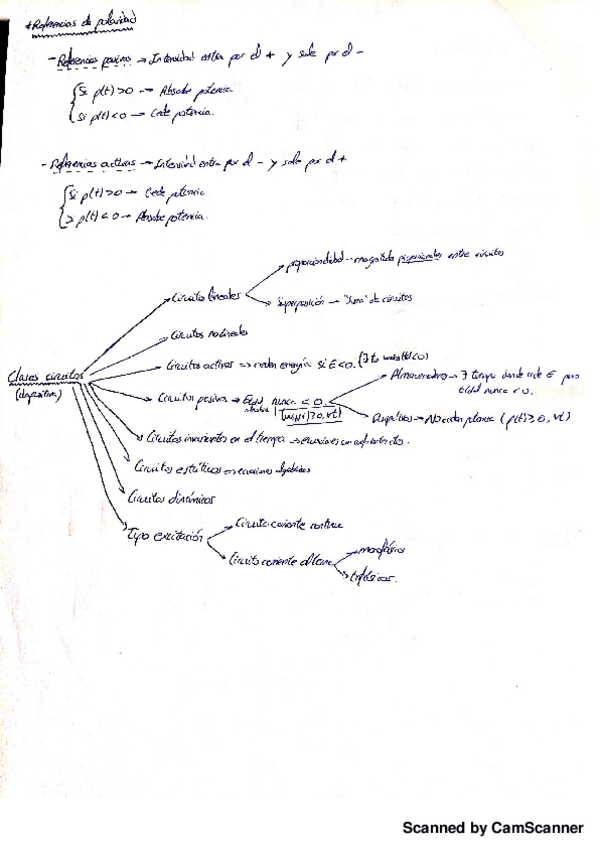 * Referencias de polaridad
- Referencias pasivas → Intensidad entra por el + y sale por el -
Si p(t) > 0 → Absorbe potencia.
Si p(t) < 0 → Cede potencia.
- Referencias activas → Intensidad entra por el - y sale por el +
Si p(t) > 0 → Cede potencia
Si p(t) < 0 → Absorbe potencia.
Clases circuitos
(dispositivos)
Circuitos lineales
proporcionalidad → magnitudes proporcionales entre circuitos
Superposición → "Suma" de circuitos
Circuitos no lineales
Circuitos activos → ceden energía si E<0.
Circuitos pasivos → nunca < 0.
Almacenadores → ∃ tiempo donde cede E pero
nunca < 0.
Disipativos → No ceden potencia (p(t) ≥ 0, ∀t)
Circuitos invariantes en el tiempo → ecuaciones con
Circuitos estáticos → ecuaciones algebraicas
Circuitos dinámicos
Tipo excitación
Circuito corriente continua
Circuito corriente alterna
monofásicos
trifásicos.
Scanned by CamScanner